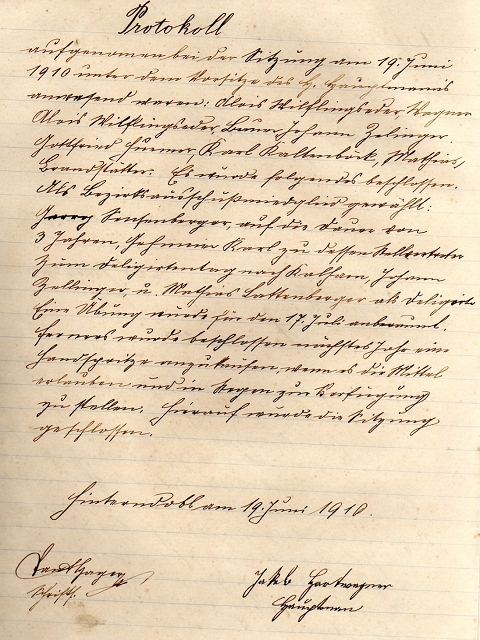 Protokoll
aufgenomen bei der Sitzung am 19. Juni
1910 unter dem Vorsitze des H. Hauptmann's
anwesend waren: Alois Wilflingseder, Wagner
Alois Wilflingseder, Bauer, Johann Zelinger.
Gottfried Humer, Karl Kaltenböck, Mathias,
Brandstätter. Es wurde folgendes beschlossen.
Als Bezirksausschußmiedglied gewählt:
Georg Senfenberger, auf die Dauer von
3 Jahren, Karl zu dessen Stellvertreter
zum Deligirtentag nach Kalham, Johann
Zellinger u. Mathias Lattenberger als Deligirte
Eine Übung wurde für den 17. Juli anberaumt.
Ferners wurde beschlossen nächstes Jahr eine
Handspritze anzukaufen, wenn es die Mittel
erlauben und in Regen zur Verfügung
zu stellen. Hierauf wurde die Sitzung
geschlossen.
Hinterndobl am 19. Juni 1910.
Schriftf.
Jakob Hartwagner
Hauptman